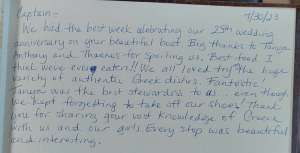 Captain - 7/30/23
We had the best week celebrating our 25th wedding
anniversary on your beautiful boat. Big thanks to Tanya
Anthony and for spoiling us. Best food I
think I ever eaten!! We all loved the huge
variety of authentic Greek dishes. Fantastic!
Tanya was the best stewardess to us... even though
we kept forgetting to take off our shoes! Thank
you for sharing your vast knowledge of Greece
with us and our girls. Every stop was beautiful
and interesting.